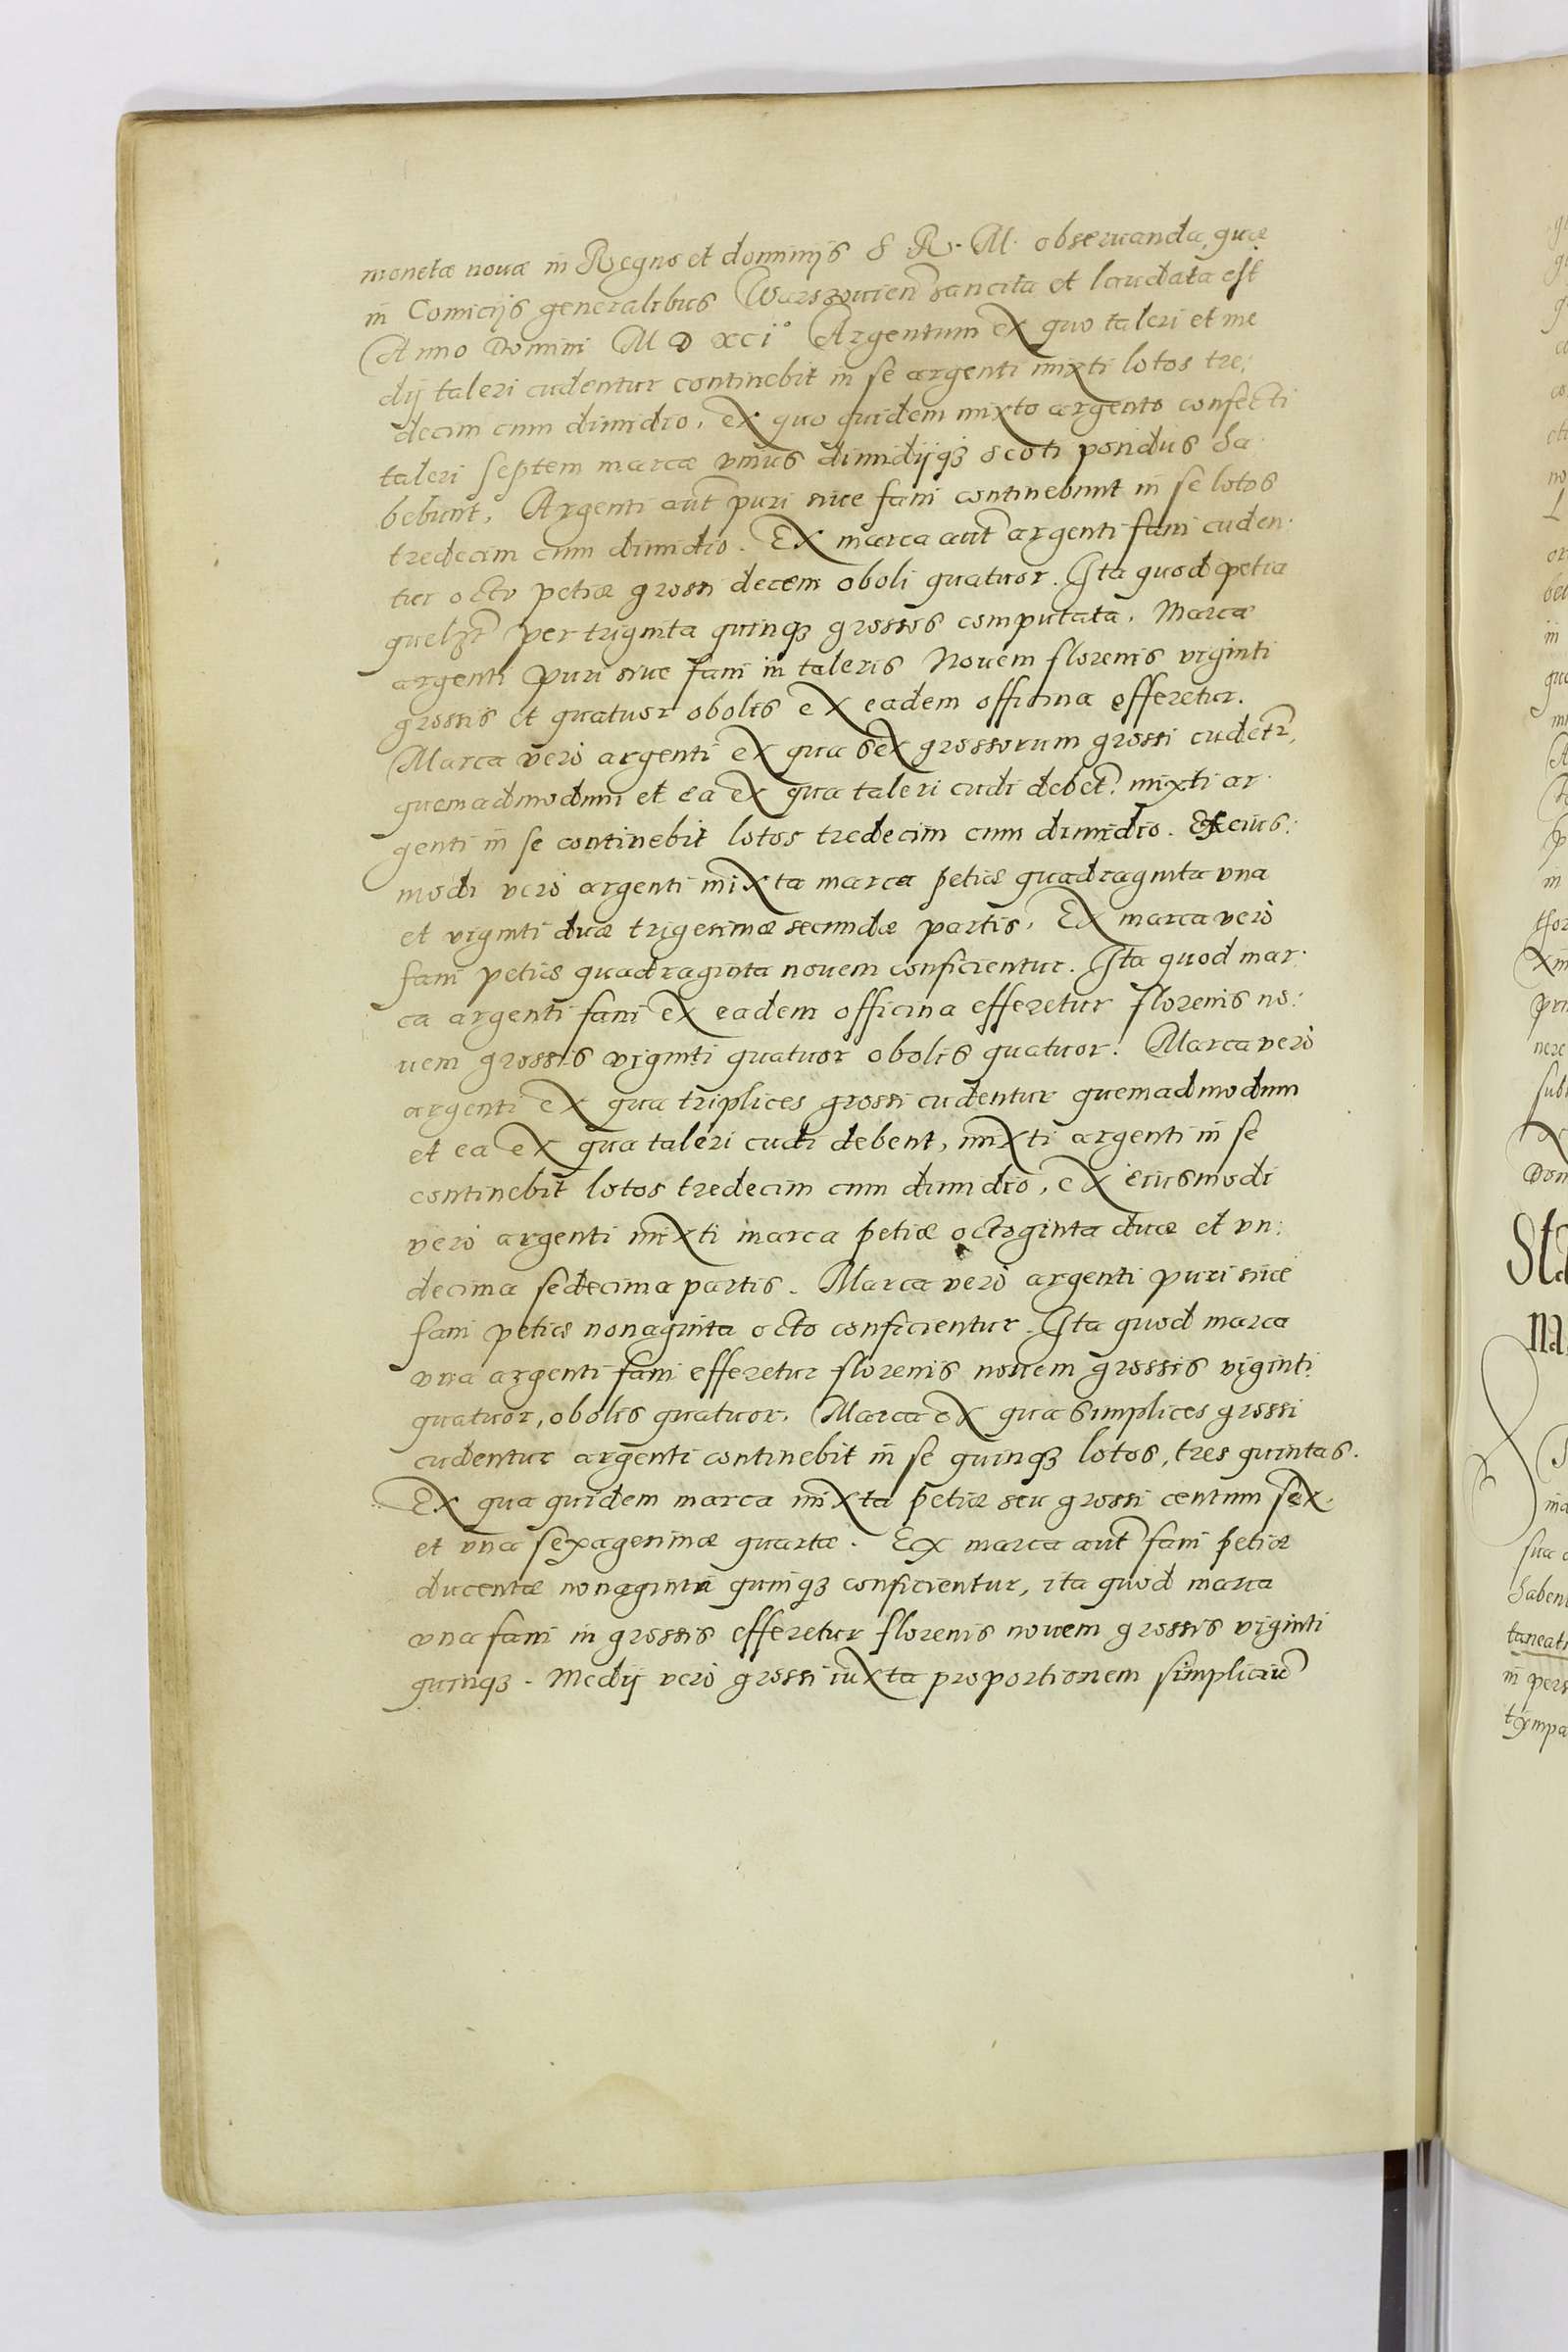 monetæ nouæ in Regno et dominijs S. R. M. obseruanda, quæ
in Comicijs generalibus Warszouien sancita et laudata est
Anno Domini M D XCI° Argentum ex quo taleri et me
dij taleri cudentur continebit in se argenti mixti lotos tre:
decim cum dimidio, ex quo quidem mixto argento confecti
taleri septem marcæ vnius dimidijq3 scoti pondus ha
bebunt, Argenti aut puri siue fani continebunt in se lotos
tredecim cum dimidio. Ex marca aut argenti fani cuden:
tur octo petiæ grossi decem oboli quatuor. Ita quod petia
quelzt per triginta quinq3 grossos computata, Marca
argenti puri siue fani in taleris Nouem florenis viginti
grossis et quatuor obolis ex eadem officina efferetur.
Marca verò argenti ex qua sex grossorum grossi cudetr,
quemadmodum et ea ex qua taleri cudi debet: mixti ar:
genti in se continebit lotos tredecim cum dimidio. Ex eius:
modi verò argenti mixta marca petiæ quadraginta vna
et viginti duæ trigesimæ secundæ partis, Ex marca verò
fani petiæ quadraginta nouem conficientur. Ita quod mar:
ca argenti fani ex eadem officina efferetur florenis no:
uem grossis viginti quatuor obolis quatuor. Marca verò
argenti ex qua triplices grossi cudentur quemadmodum
et ea ex qua taleri cudi debent, mixti argenti in se
continebit lotos tredecim cum dimidio, ex eiusmodi
verò argenti mixti marca petiæ octoginta duæ et vn:
decima sedecima partis. Marca verò argenti puri siue
fani petiæ nonaginta octo conficientur. Ita quod marca
vna argenti fani efferetur florenis nouem grossis viginti
quatuor, obolis quatuor. Marca ex qua simplices grossi
cudentur argenti continebit in se quinq3 lotos, tres quintas.
Ex qua quidem marca mixta petiæ seu grossi centum sex.
et vna sexagesimæ quartæ. Ex marca aut fani petiæ
ducentæ nonaginta quinq3 conficientur, ita quod marca
vna fani in grossis efferetur florenis nouem grossis viginti
quinq3. Medij verò grossi iuxta proportionem simpliciu